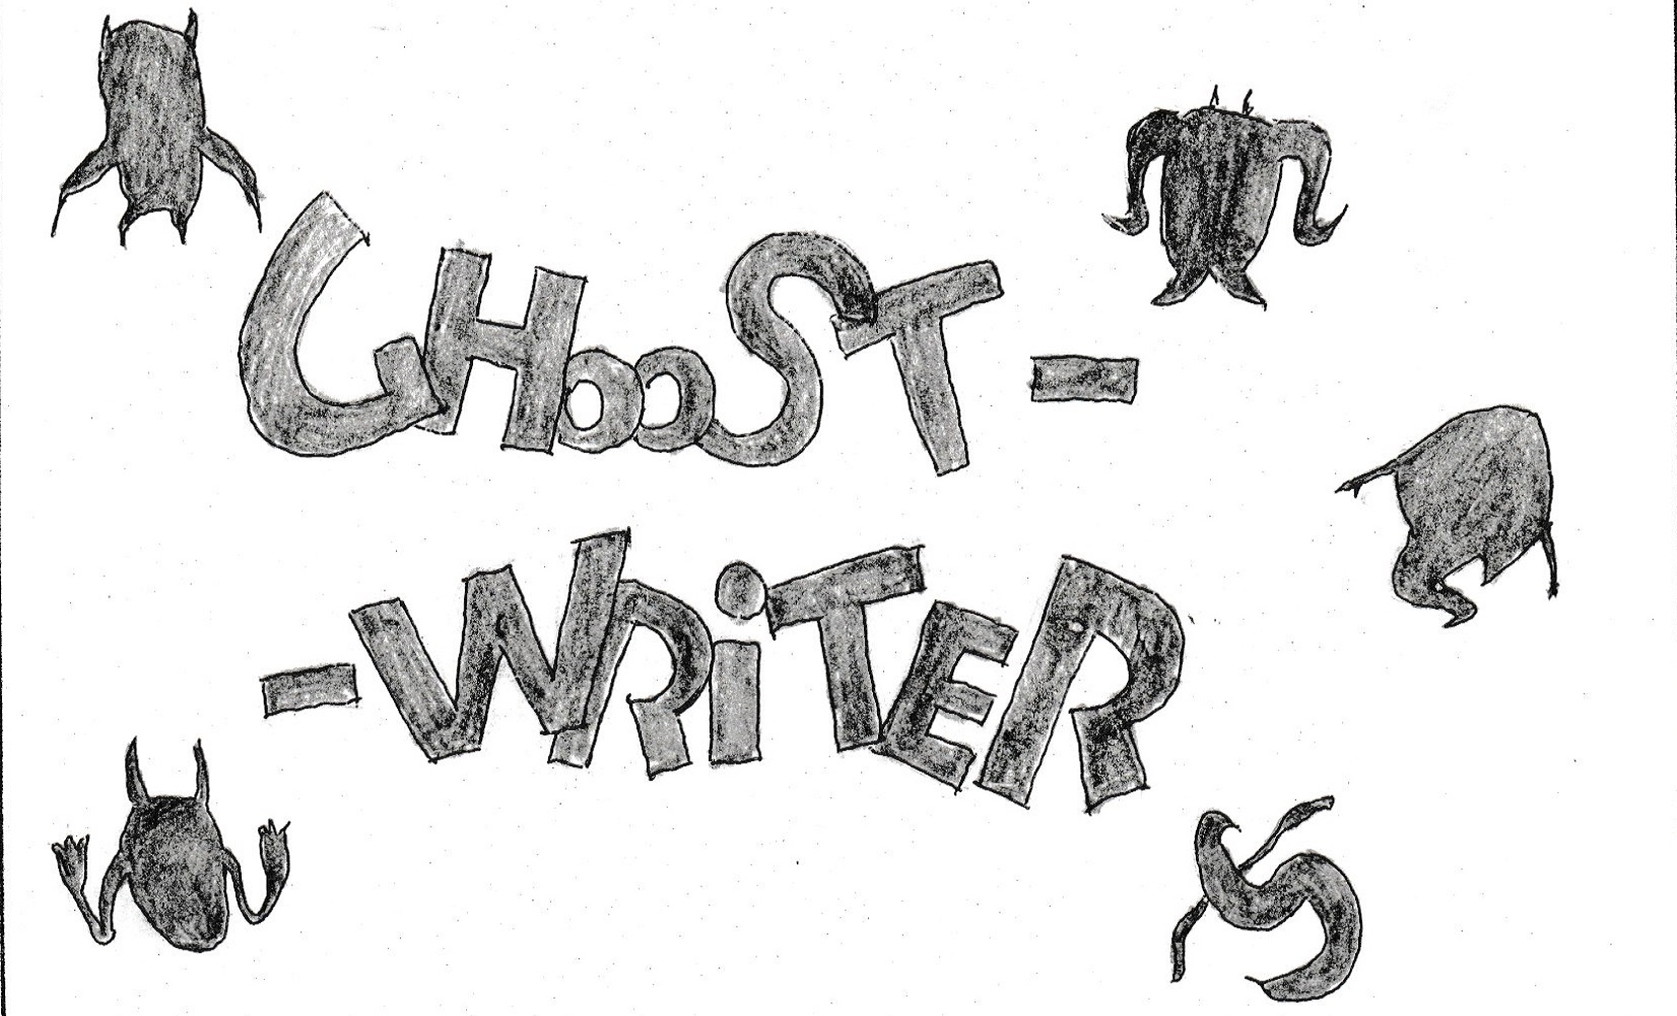 GHooST-
-WRiTER